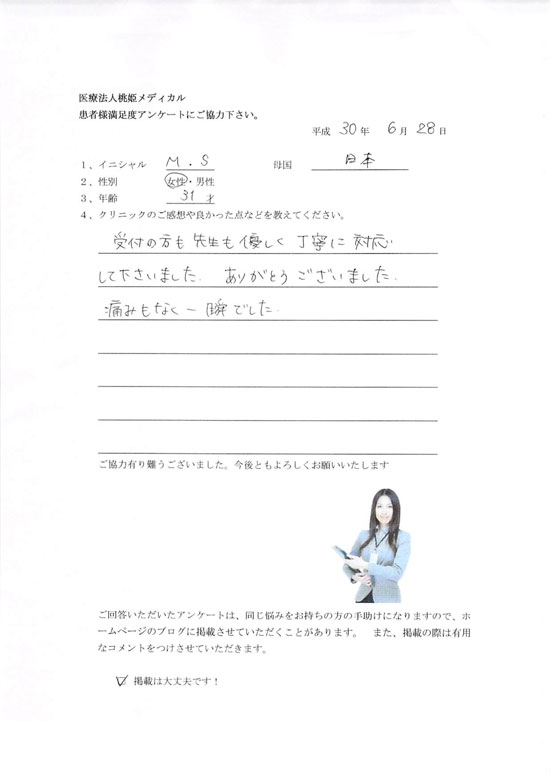 医療法人桃姫メディカル
患者様満足度アンケートにご協力下さい。
平成 30 年 6 月 28 日
1、イニシャル M.S 母国 日本
2、性別 女性・男性
3、年齢 31 才
4、クリニックのご感想や良かった点などを教えてください。
受付の方も先生も優しく丁寧に対応
して下さいました。ありがとうございました。
痛みもなく一瞬でした。
ご協力有り難うございました。今後ともよろしくお願いいたします
ご回答いただいたアンケートは、同じ悩みをお持ちの方の手助けになりますので、ホ
ームページのブログに掲載させていただくことがあります。 また、掲載の際は有用
なコメントをつけさせていただきます。
☑ 掲載は大丈夫です！